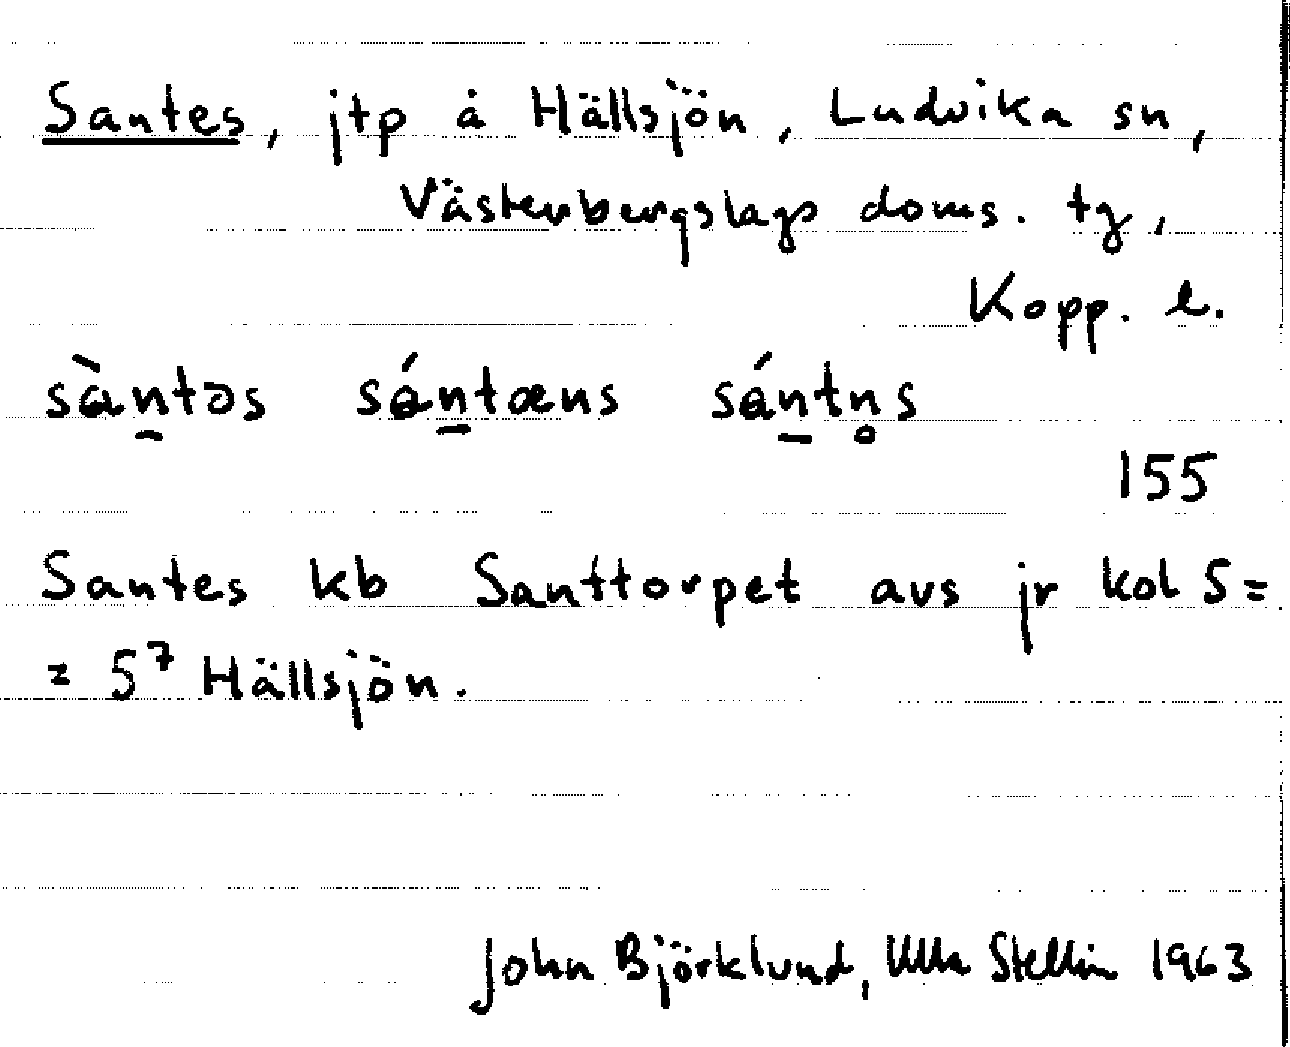 Santes, jtp å Hällsjön, Ludvika sn,
Västerbergslags doms. tg,
Kopp. l.
sàn̠təs sán̠tæns sán̠tn̥s
155
Santes kb Santtorpet avs jr kol S=
= 5⁷ Hällsjön.
John Björklund, Ulla Stellin 1963